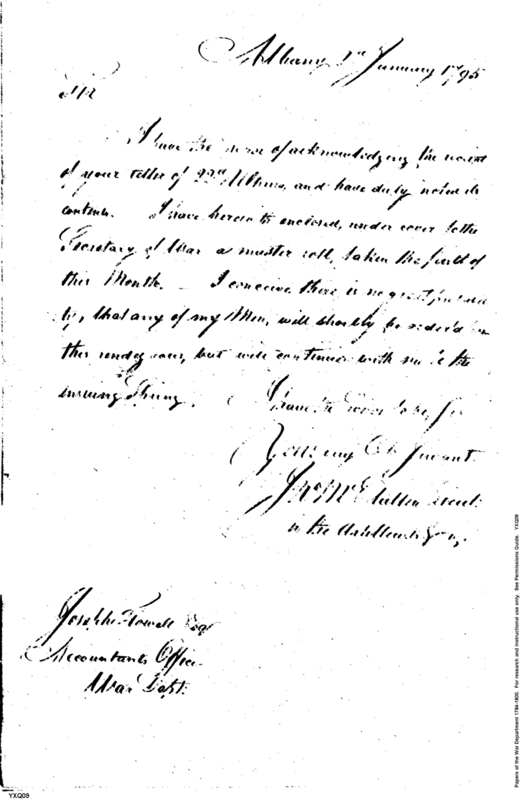 Albany January 1795
Sir
I have the of acknowledging the receipt
of your letter of 22d Ultimo, and have duly noted its
contents. I have herewith enclosed, under cover to the
Secretary of War a muster roll, taken the first of
this Month. I conceive there is no great
that any of my Men, will shortly be order'd
this rendezvous, but will continue with me 'till the
ensuing Spring.
I have the honor to be, Sir
Your Obt Servant
in the
Joseph Howell Esqr
Accountants Office
War Dept.
YXQ09
Papers of the War Department 1784-1800. For research and instructional use only. See Permissions Guide. YXQ09